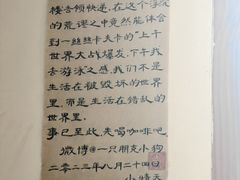 楼舌领快递,在这个浮沉
的荒谬之中竟然能体会
到一丝丝卡夫卡的“上午
世界大战爆发,下午我
去游泳”之感,我们不是
生活在被毁坏的世界
里,而是生活在错乱的
世界里。
事已至此,先喝咖啡吧
微博@一只朋克小狗
二零二三年八月二十四日
小